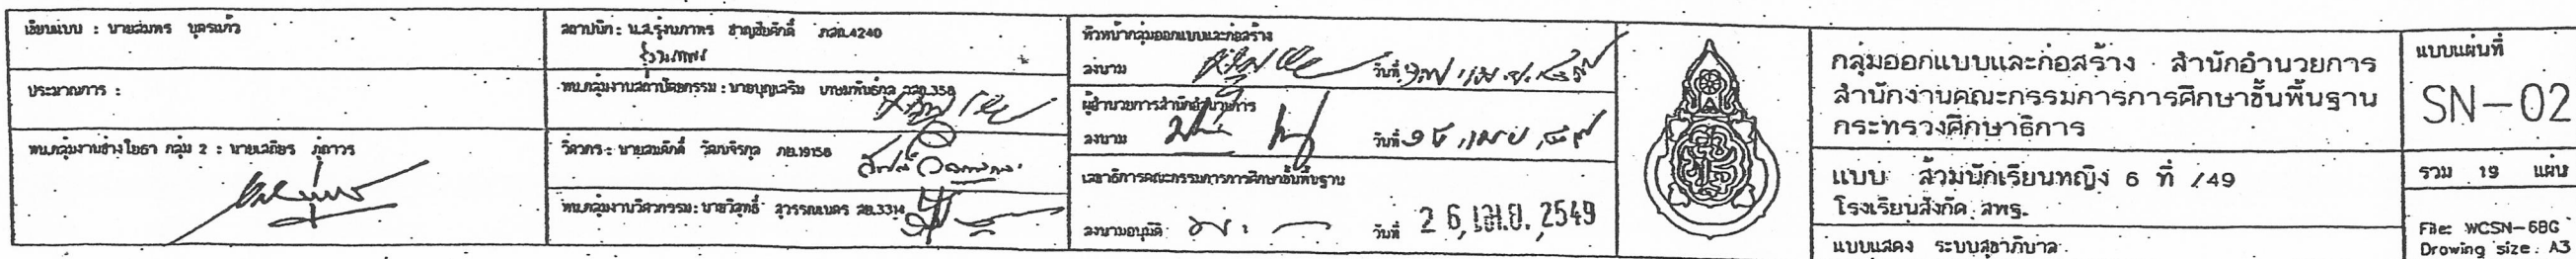 เขียนแบบ : นายสมพร บุตรแก้ว
ประมาณการ :
หน.กลุ่มงานช่างโยธา กลุ่ม 2 : นายเสถียร ภู่ถาวร
สถาปนิก : น.ส.รุ่งนภาพร ชาญชัยศักดิ์ ภสถ.4240
รุ่งนภาพร
หน.กลุ่มงานสถาปัตยกรรม : นายบุญเสริม เกษมพันธ์กุล วสถ.358
วิศวกร : นายสมศักดิ์ วัฒนจิรกุล ภย.19158
หน.กลุ่มงานวิศวกรรม : นายวิสุทธิ์ สุวรรณเนตร สย.3314
หัวหน้ากลุ่มออกแบบและก่อสร้าง
ลงนาม วันที่
ผู้อำนวยการสำนักอำนวยการ
ลงนาม วันที่
เลขาธิการคณะกรรมการการศึกษาขั้นพื้นฐาน
ลงนามอนุมัติ วันที่ 26 เม.ย. 2549
กลุ่มออกแบบและก่อสร้าง สำนักอำนวยการ
สำนักงานคณะกรรมการการศึกษาขั้นพื้นฐาน
กระทรวงศึกษาธิการ
แบบ ส้วมนักเรียนหญิง 6 ที่ /49
โรงเรียนสังกัด สพฐ.
แบบแสดง ระบบสุขาภิบาล
แบบแผ่นที่
SN-02
รวม 19 แผ่น
File: WCSN-6BG
Drowing size. A3